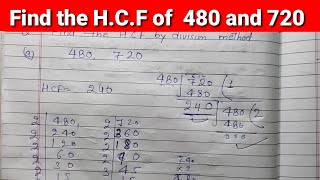 Find the H.C.F of 480 and 720
Find the HCF by division method
480, 720
HCF = 240
480 720 (1
480
240 480 (2
480
000
2 480 2 720
2 240 2 360
2 120 2 180
2 60 2 90
2 30 3 45
15 15